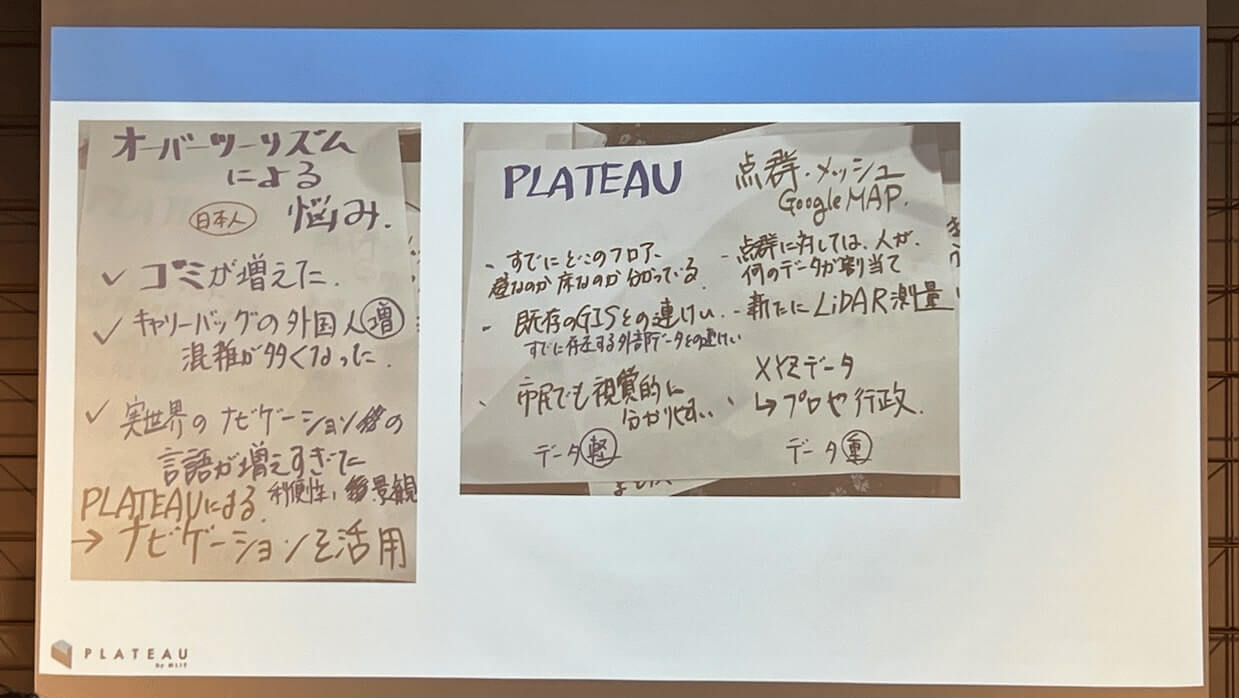 オーバーツーリズム
による
日本人 悩み.
✓ ゴミが増えた.
✓ キャリーバッグの外国人増
混雑が多くなった.
✓ 実世界のナビゲーション
言語が増えすぎた
PLATEAUによる 利便性, 景観
→ ナビゲーションを活用
PLATEAU
・すでにどこのフロア、
壁なのか床なのか分かっている.
- 既存のGISとの連けい.
すでに存在する外部データとの連けい
・市民でも視覚的に
分かりやすい
データ軽
点群・メッシュ
Google MAP.
- 点群に対しては、人が、
何のデータか割り当て
- 新たにLiDAR測量
・XYZデータ
↳ プロや行政.
データ重
PLATEAU
by MLIT